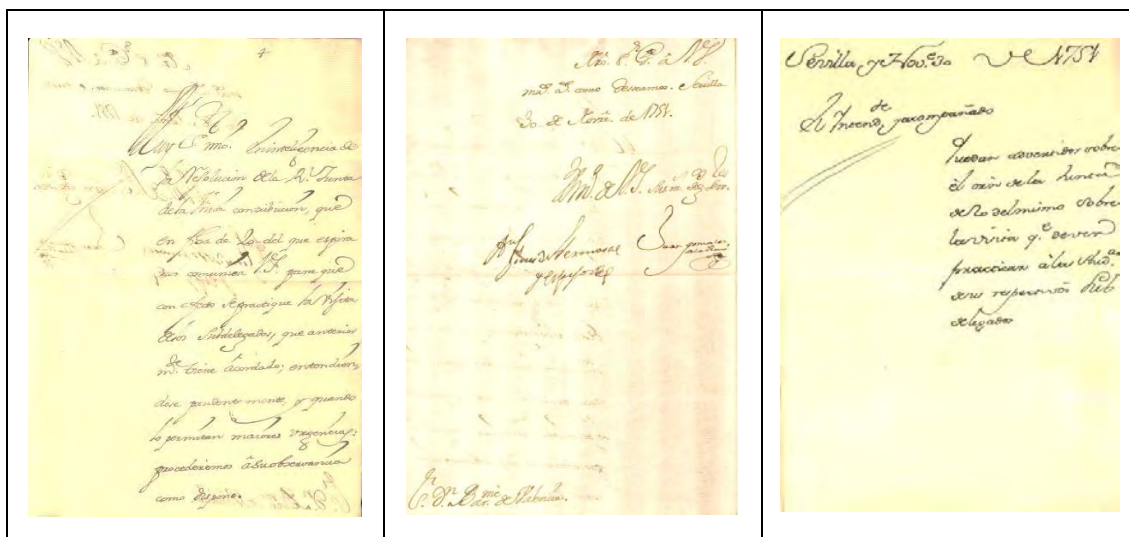 4
Muy S.r mio. En inteligencia de
la Resolucion de la R.l Junta
de la Unica contribucion, que
en fha de 20 del que espira
nos comunica V.S. para que
con efecto se practique la Visita
de los Subdelegados, que anterior
m.te tiene acordado; entendien
dose prudente mente, y quando
lo permitan maiores urgencias:
procederemos â su observancia
como dispone.
Nro. S.r G.e à V.S.
m.s a.s como deseamos. Sevilla
30. de Nov.re de 1751.
BLM. de V.S.
Hermosa
y espejo
Juan Gonzalez
S.r D.n Bar.me de Valencia.
Sevilla, y Nov.e 30 de 1751
El Intend.te, y acompañado
Quedan advertidos sobre
el orn de la Junta
de 20 del mismo sobre
la visita q.e deven
practicar à las Aud.as
de sus respectivos Sub
delegados